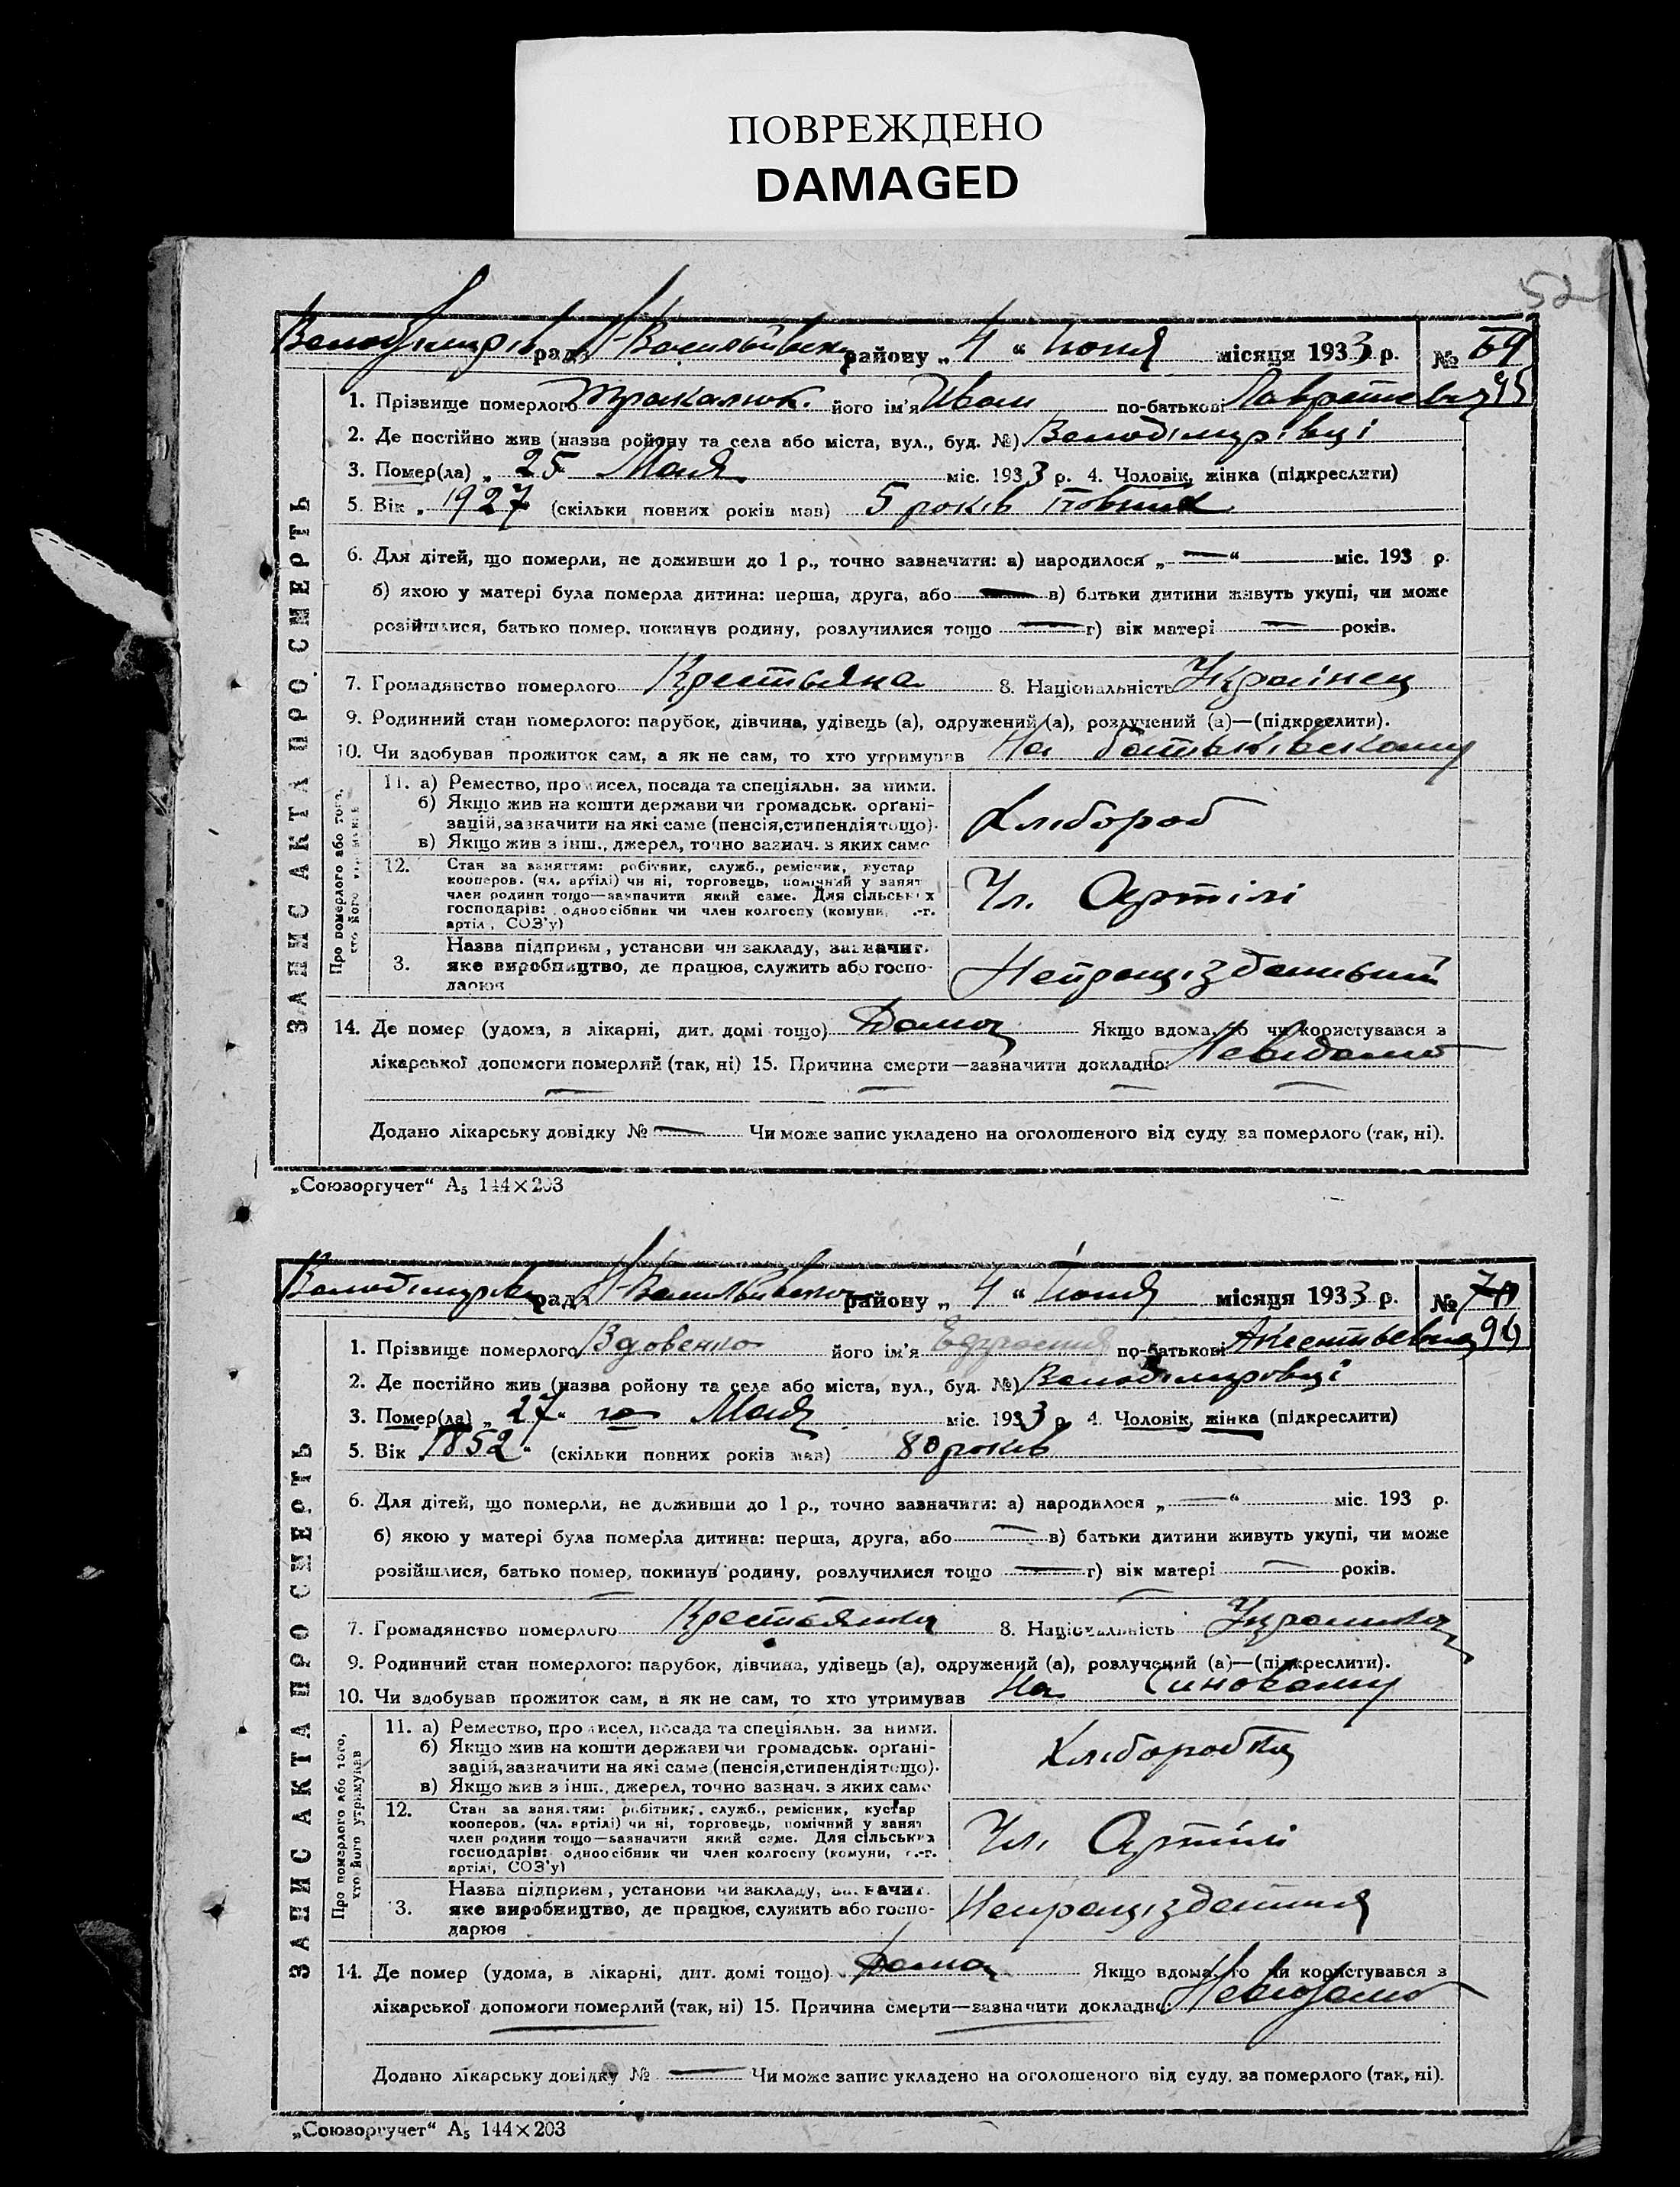 ПОВРЕЖДЕНО
DAMAGED
52
рада району „ 4 “ Іюня місяця 1933 р. № 69
95
1. Прізвище померлого його ім'я Иван по-батькові
2. Де постійно жив (назва ройону та села або міста, вул., буд. №) Володимирівці
3. Помер(ла) „ 25 Мая міс. 1933 р. 4. Чоловік, жінка (підкреслити)
5. Вік „ 1927 (скільки повних років мав) 5 років повних
6. Для дітей, що померли, не доживши до 1 р., точно зазначити: а) народилося „ — “ — міс. 193 р.
б) якою у матері була померла дитина: перша, друга, або — в) батьки дитини живуть укупі, чи може
розійшлися, батько помер, покинув родину, розлучилися тощо — г) вік матері — років.
7. Громадянство померлого Крестьяна 8. Національність Українец
9. Родинний стан померлого: парубок, дівчина, удівець (а), одружений (а), розлучений (а)—(підкреслити).
10. Чи здобував прожиток сам, а як не сам, то хто утримував На батьківському
11. а) Ремество, промисел, посада та спеціяльн. за ними.
б) Якщо жив на кошти держави чи громадськ. органі-
зацій, зазначити на які саме (пенсія, стипендія тощо).
в) Якщо жив з інш., джерел, точно зазнач. з яких саме
Хлібороб
12. Стан за заняттям: робітник, служб., ремісник, кустар
кооперов. (чл. артілі) чи ні, торговець, помічний у занят
член родини тощо—зазначити який саме. Для сільських
господарів: одноосібник чи член колгоспу (комуни, с.-г.
артіл, СОЗ'у)
Чл. Артілі
3. Назва підприєм, установи чи закладу, зазначит.
яке виробництво, де працює, служить або госпо-
дарює
Непрацездатний
14. Де помер (удома, в лікарні, дит. домі тощо) Дома Якщо вдома, то чи користувався з
лікарської допомоги померлий (так, ні) 15. Причина смерти—зазначити докладно: Невідомо
Додано лікарську довідку № — Чи може запис укладено на оголошеного від суду за померлого (так, ні).
ЗАПИС АКТА ПРО СМЕРТЬ
Про померлого або того,
хто його утримував
„Союзоргучет“ А₅ 144×203
рада району „ 4 “ Іюня місяця 1933 р. № 70
96
1. Прізвище померлого Вдовенко його ім'я по-батькові
2. Де постійно жив (назва ройону та села або міста, вул., буд. №) Володимировці
3. Помер(ла) „ 27 “ го Мая міс. 1933 р. 4. Чоловік, жінка (підкреслити)
5. Вік „ 1852 “ (скільки повних років мав) 80 років
6. Для дітей, що померли, не доживши до 1 р., точно зазначити: а) народилося „ — “ міс. 193 р.
б) якою у матері була померла дитина: перша, друга, або — в) батьки дитини живуть укупі, чи може
розійшлися, батько помер, покинув родину, розлучилися тощо — г) вік матері — років.
7. Громадянство померлого Крестьянка 8. Національність Украинка
9. Родинний стан померлого: парубок, дівчина, удівець (а), одружений (а), розлучений (а)—(підкреслити).
10. Чи здобував прожиток сам, а як не сам, то хто утримував На Синовому
11. а) Ремество, промисел, посада та спеціяльн. за ними.
б) Якщо жив на кошти держави чи громадськ. органі-
зацій, зазначити на які саме (пенсія, стипендія тощо).
в) Якщо жив з інш., джерел, точно зазнач. з яких саме
Хлібооробка
12. Стан за заняттям: робітник, служб., ремісник, кустар
кооперов. (чл. артілі) чи ні, торговець, помічний у занят
член родини тощо—зазначити який саме. Для сільських
господарів: одноосібник чи член колгоспу (комуни, с.-г.
артілі, СОЗ'у)
Чл. Артілі
3. Назва підприєм, установи чи закладу, зазначит.
яке виробництво, де працює, служить або госпо-
дарює
Непрацездатная
14. Де помер (удома, в лікарні, дит. домі тощо) Дома Якщо вдома, то чи користувався з
лікарської допомоги померлий (так, ні) 15. Причина смерти—зазначити докладно: Невідомо
Додано лікарську довідку № — Чи може запис укладено на оголошеного від суду за померлого (так, ні).
ЗАПИС АКТА ПРО СМЕРТЬ
Про померлого або того,
хто його утримував
„Союзоргучет“ А₅ 144×203